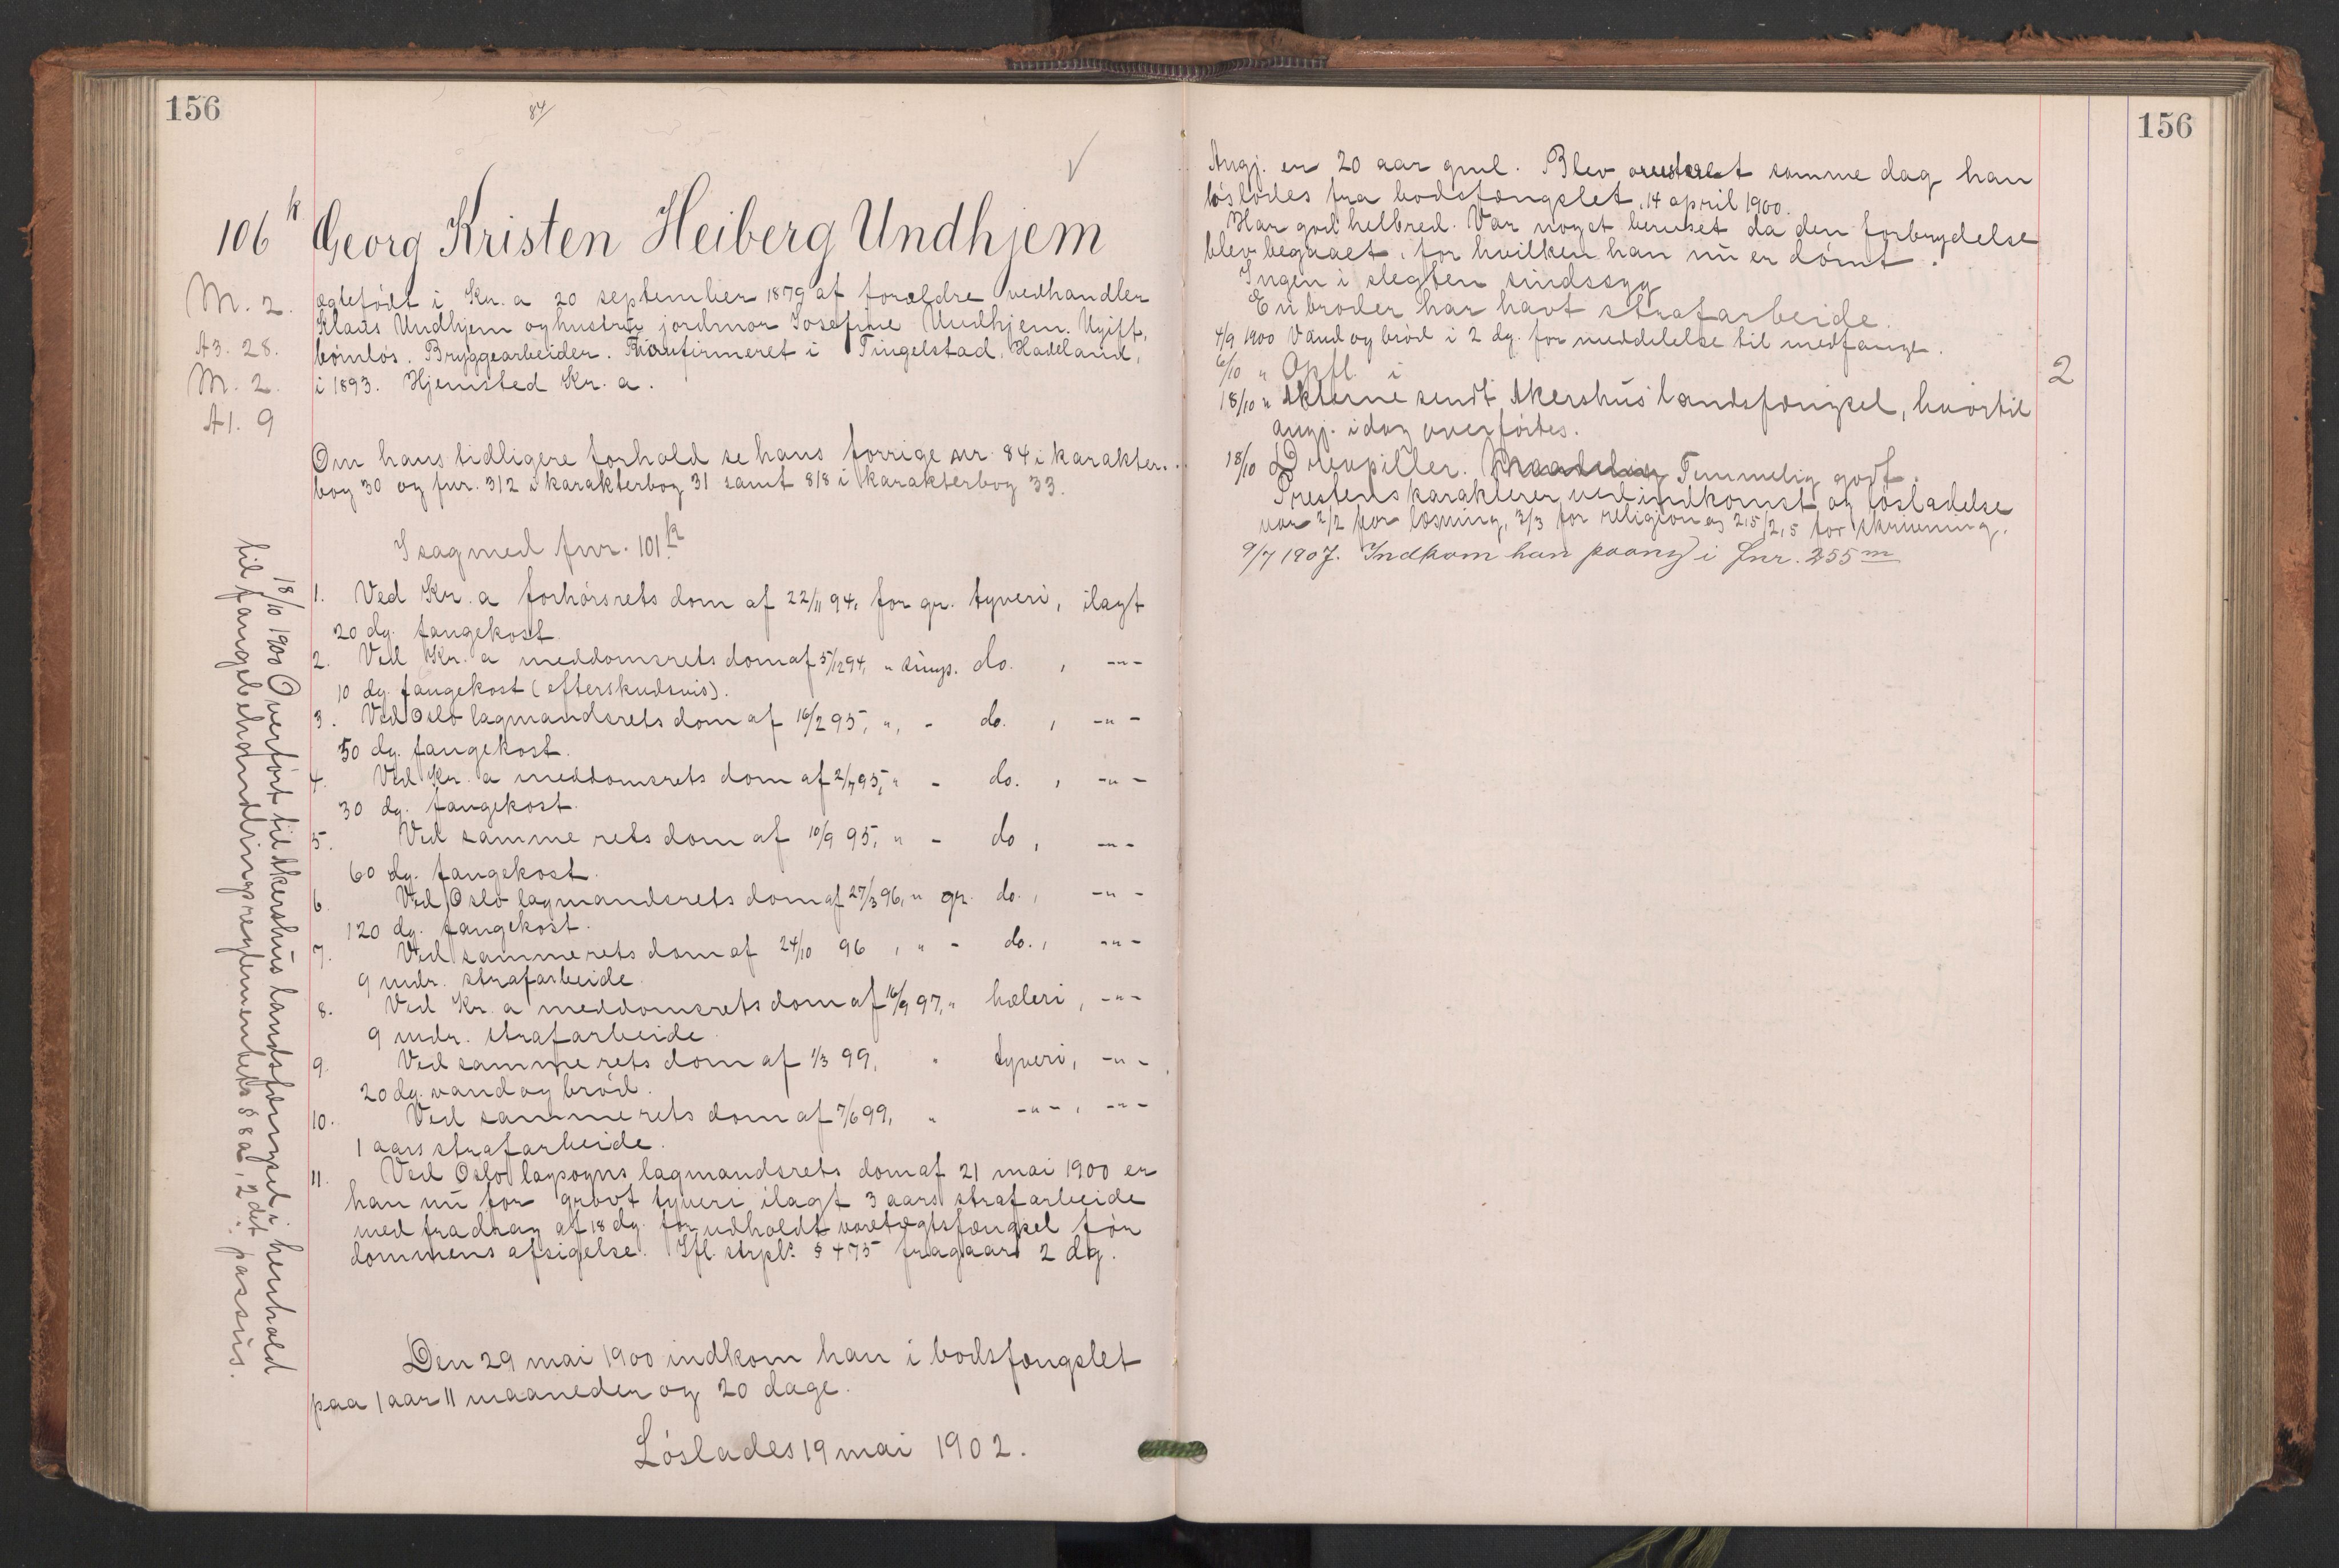 156
84/
106 k Georg Kristen Heiberg Undhjem
M. 2.
A3. 28.
M. 2.
A1. 9
ægtefødt i Kr.a 20 september 1879 af forældre vedhandler
Klaus Undhjem og hustru jordmor Josefine Undhjem. Ugift,
børnløs. Bryggearbeider. Konfirmeret i Tingelstad, Hadeland,
i 1893. Hjemsted Kr.a.
Om hans tidligere forhold se hans forrige nr. 84 i karakter-
bog 30 og fnr. 312 i karakterbog 31 samt 818 i karakterbog 33.
I sag med fnr. 101 k
1. Ved Kr.a forhørsrets dom af 22/11 94, for gr. tyveri, ilagt
20 dg. fangekost
2. Ved Kr.a meddomsrets dom af 5/12 94, " simp. do. , -"-
10 dg. fangekost (efterskudsvis).
3. Ved Oslo lagmandsrets dom af 16/2 95, " - do. , -"-
50 dg. fangekost.
4. Ved Kr.a meddomsrets dom af 2/7 95, " - do. , -"-
30 dg. fangekost.
5. Ved samme rets dom af 10/9 95, " - do , -"-
60 dg. fangekost.
6. Ved Oslo lagmandsrets dom af 27/3 96, " gr. do. , -"-
120 dg. fangekost.
7. Ved samme rets dom af 24/10 96 , " - do. , -"-
9 mdr. strafarbeide
8. Ved Kr.a meddomsrets dom af 16/9 97, " hæleri , -"-
9 mdr. strafarbeide
9. Ved samme rets dom af 1/3 99, " tyveri, -"-
20 dg. vand og brød.
10. Ved samme rets dom af 7/6 99, " -"- , -"-
1 aars strafarbeide.
11. Ved Oslo lagsogns lagmandsrets dom af 21 mai 1900 er
han nu for grovt tyveri ilagt 3 aars strafarbeide
med fradrag af 18 dg. for udholdt varetægtsfængsel før
dommens afsigelse. Ifl. strpl. § 475 fragaar 2 dg.
Den 29 mai 1900 indkom han i bodsfængslet
paa 1 aar 11 maaneder og 20 dage.
Løslades 19 mai 1902.
18/10 1900 Overført til Akershus landsfængsel i henhold
til fangebehandlingsreglementets § 8 a, 2det passus.
156
Angj. er 20 aar gml. Blev arresteret samme dag han
løslodes fra bodsfængslet, 14 april 1900.
Har god helbred. Var noget beruset da den forbrydelse
blev begaaet, for hvilken han nu er dømt.
Ingen i slegten sindssyg
En broder har havt strafarbeide.
4/9 1900 Vand og brød i 2 dg. for meddelelse til medfange.
6/10 " Opfl. i
2
18/10 " Akterne sendt Akershus landsfængsel, hvortil
angj. idag overførtes.
18/10 Drevpiller. Temmelig godt.
Prestens karakterer ved indkomst og løsladelse
var 2/2 for læsning, 3/3 for religion og 2,5/2,5 for skrivning.
9/7 1907. Indkom han paany i fnr. 255 m